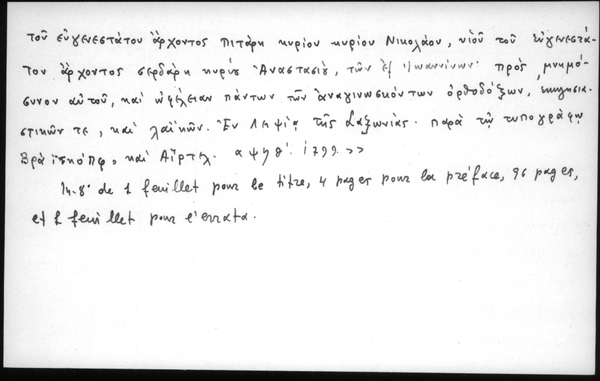 τοῦ εὐγενεστάτου ἄρχοντος πιτάρη κυρίου κυρίου Νικολάου, υἱοῦ τοῦ εὐγενεστά-
του ἄρχοντος σερδάρη κυρίου Ἀναστασίου, τῶν ἐξ Ἰωαννίνων· πρὸς μνημό-
συνον αὐτοῦ, καὶ ὠφέλειαν πάντων τῶν ἀναγινωσκόντων ὀρθοδόξων, ἐκκλησια-
στικῶν τε, καὶ λαϊκῶν. Ἐν Λειψίᾳ τῆς Σαξωνίας. παρὰ τῷ τυπογράφῳ
Βράϊτκόπφ, καὶ Αἵρτελ. αψϟθʹ. 1799. >>
In-8° de 1 feuillet pour le titre, 4 pages pour la préface, 96 pages,
et 1 feuillet pour l'errata.